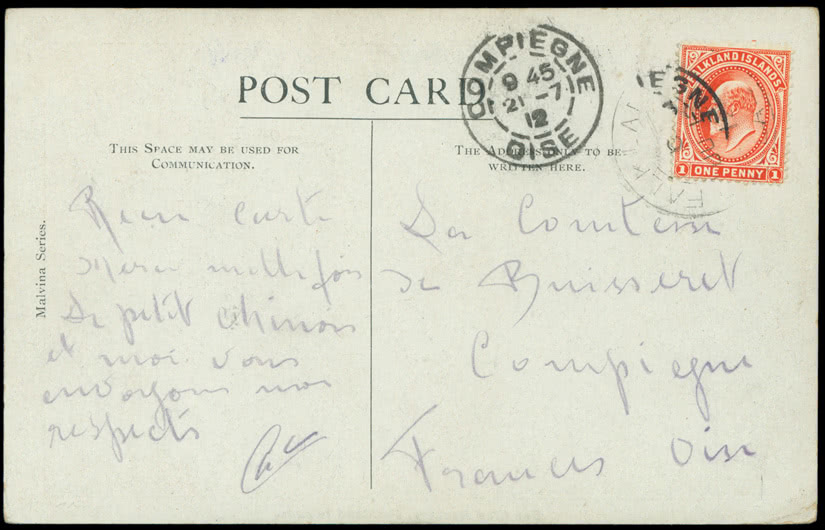 POST CARD
THIS SPACE MAY BE USED FOR
COMMUNICATION.
THE ADDRESS ONLY TO BE
WRITTEN HERE.
Malvina Series.
COMPIEGNE
9 45
21 - 7
12
OISE
IEGNE
FALKLA
FALKLAND ISLANDS
1 ONE PENNY 1
Reçu carte
Merci mille fois
Le petit chinois
et moi vous
envoyons nos
respects
La Comtesse
de Buisseret
Compiegne
France Oise